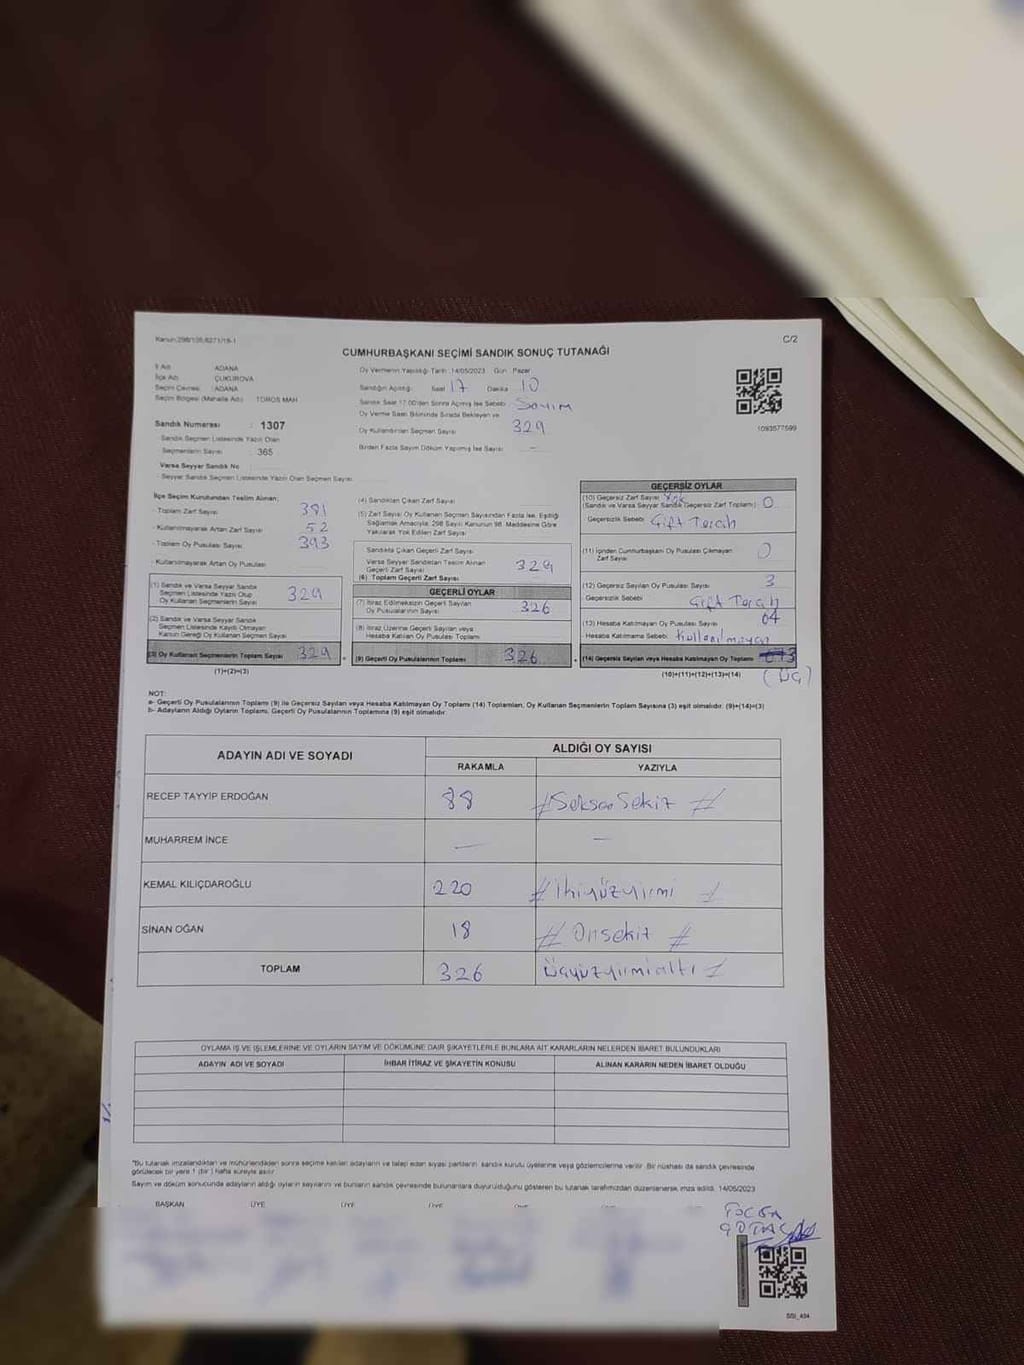 Kanun:298/105,6271/19-1
C/2
CUMHURBAŞKANI SEÇİMİ SANDIK SONUÇ TUTANAĞI
İl Adı : ADANA
İlçe Adı : ÇUKUROVA
Seçim Çevresi : ADANA
Seçim Bölgesi (Mahalle Adı) : TOROS MAH
Sandık Numarası : 1307
Sandık Seçmen Listesinde Yazılı Olan
Seçmenlerin Sayısı : 365
Varsa Seyyar Sandık No
Seyyar Sandık Seçmen Listesinde Yazılı Olan Seçmen Sayısı
Oy Vermenin Yapıldığı Tarih :14/05/2023 Gün : Pazar
Sandığın Açıldığı Saat 17 Dakika 10
Sandık Saat 17.00'den Sonra Açılmış İse Sebebi Sayım
Oy Verme Saati Bitiminde Sırada Bekleyen ve
Oy Kullandırılan Seçmen Sayısı 329
Birden Fazla Sayım Döküm Yapılmış İse Sayısı -
1093577599
İlçe Seçim Kurulundan Teslim Alınan:
Toplam Zarf Sayısı 381
Kullanılmayarak Artan Zarf Sayısı 52
Toplam Oy Pusulası Sayısı 393
Kullanılmayarak Artan Oy Pusulası
(1) Sandık ve Varsa Seyyar Sandık
Seçmen Listesinde Yazılı Olup
Oy Kullanan Seçmenlerin Sayısı 329
(2) Sandık ve Varsa Seyyar Sandık
Seçmen Listesinde Kayıtlı Olmayan
Kanun Gereği Oy Kullanan Seçmen Sayısı
(3) Oy Kullanan Seçmenlerin Toplam Sayısı 329
(1)+(2)=(3)
(4) Sandıktan Çıkan Zarf Sayısı
(5) Zarf Sayısı Oy Kullanan Seçmen Sayısından Fazla İse, Eşitliği
Sağlamak Amacıyla; 298 Sayılı Kanunun 98. Maddesine Göre
Yakılarak Yok Edilen Zarf Sayısı
Sandıkta Çıkan Geçerli Zarf Sayısı
Varsa Seyyar Sandıktan Teslim Alınan
Geçerli Zarf Sayısı
(6) Toplam Geçerli Zarf Sayısı 329
GEÇERLİ OYLAR
(7) İtiraz Edilmeksizin Geçerli Sayılan
Oy Pusulalarının Sayısı 326
(8) İtiraz Üzerine Geçerli Sayılan veya
Hesaba Katılan Oy Pusulası Toplamı
(9) Geçerli Oy Pusulalarının Toplamı 326
GEÇERSİZ OYLAR
(10) Geçersiz Zarf Sayısı Yok
(Sandık ve Varsa Seyyar Sandık Geçersiz Zarf Toplamı) 0
Geçersizlik Sebebi Çift Tercih
(11) İçinden Cumhurbaşkanı Oy Pusulası Çıkmayan
Zarf Sayısı 0
(12) Geçersiz Sayılan Oy Pusulası Sayısı 3
Geçersizlik Sebebi Çift Tercih
(13) Hesaba Katılmayan Oy Pusulası Sayısı 64
Hesaba Katılmama Sebebi Kullanılmayan
(14) Geçersiz Sayılan veya Hesaba Katılmayan Oy Toplamı 3
(Üç)
(10)+(11)+(12)+(13)=(14)
NOT:
a- Geçerli Oy Pusulalarının Toplamı (9) ile Geçersiz Sayılan veya Hesaba Katılmayan Oy Toplamı (14) Toplamları, Oy Kullanan Seçmenlerin Toplam Sayısına (3) eşit olmalıdır. (9)+(14)=(3)
b- Adayların Aldığı Oyların Toplamı, Geçerli Oy Pusulalarının Toplamına (9) eşit olmalıdır.
ADAYIN ADI VE SOYADI
ALDIĞI OY SAYISI
RAKAMLA YAZIYLA
RECEP TAYYİP ERDOĞAN 88 #SeksenSekiz #
MUHARREM İNCE - -
KEMAL KILIÇDAROĞLU 220 #İkiyüzyirmi #
SİNAN OĞAN 18 # Onsekiz #
TOPLAM 326 Üçyüzyirmialtı #
OYLAMA İŞ VE İŞLEMLERİNE VE OYLARIN SAYIM VE DÖKÜMÜNE DAİR ŞİKAYETLERLE BUNLARA AİT KARARLARIN NELERDEN İBARET BULUNDUKLARI
ADAYIN ADI VE SOYADI İHBAR İTİRAZ VE ŞİKAYETİN KONUSU ALINAN KARARIN NEDEN İBARET OLDUĞU
*Bu tutanak imzalandıktan ve mühürlendikten sonra seçime katılan adayların ve talep eden siyasi partilerin sandık kurulu üyelerine veya gözlemcilerine verilir. Bir nüshası da sandık çevresinde
görülecek bir yere 1 (bir) hafta süreyle asılır.
Sayım ve döküm sonucunda adayların aldığı oyların sayılarını ve bunların sandık çevresinde bulunanlara duyurulduğunu gösteren bu tutanak tarafımızdan düzenlenerek imza edildi. 14/05/2023
BAŞKAN ÜYE ÜYE ÜYE